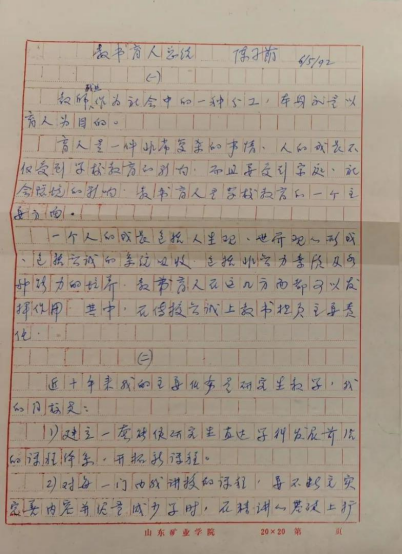 教书育人总结 陈子荀 4/5/92
(一)
教师,作为社会中的一种分工,本身就是以
育人为目的。
育人是一种非常复杂的事情。人的成长不
仅受到学校教育的影响,而且要受到家庭、社
会环境的影响。教书育人是学校教育的一个主
要方面。
一个人的成长包括人生观、世界观的形成,
包括知识的系统吸收,包括非智力素质及
种能力的培养。教书育人在这几方面都可以发
挥作用。其中,在传授知识上教书担负主要责
任。
(二)
近十年来我的主要任务是研究生教学,我
的目标是:
1)建立一套能使研究生直达学科发展前沿
的课程体系,开拓新课程。
2)对每一门由我讲授的课程,要不断充实
内容并尽量减少学时,在精讲的基础上
山东矿业学院 20×20 第 页